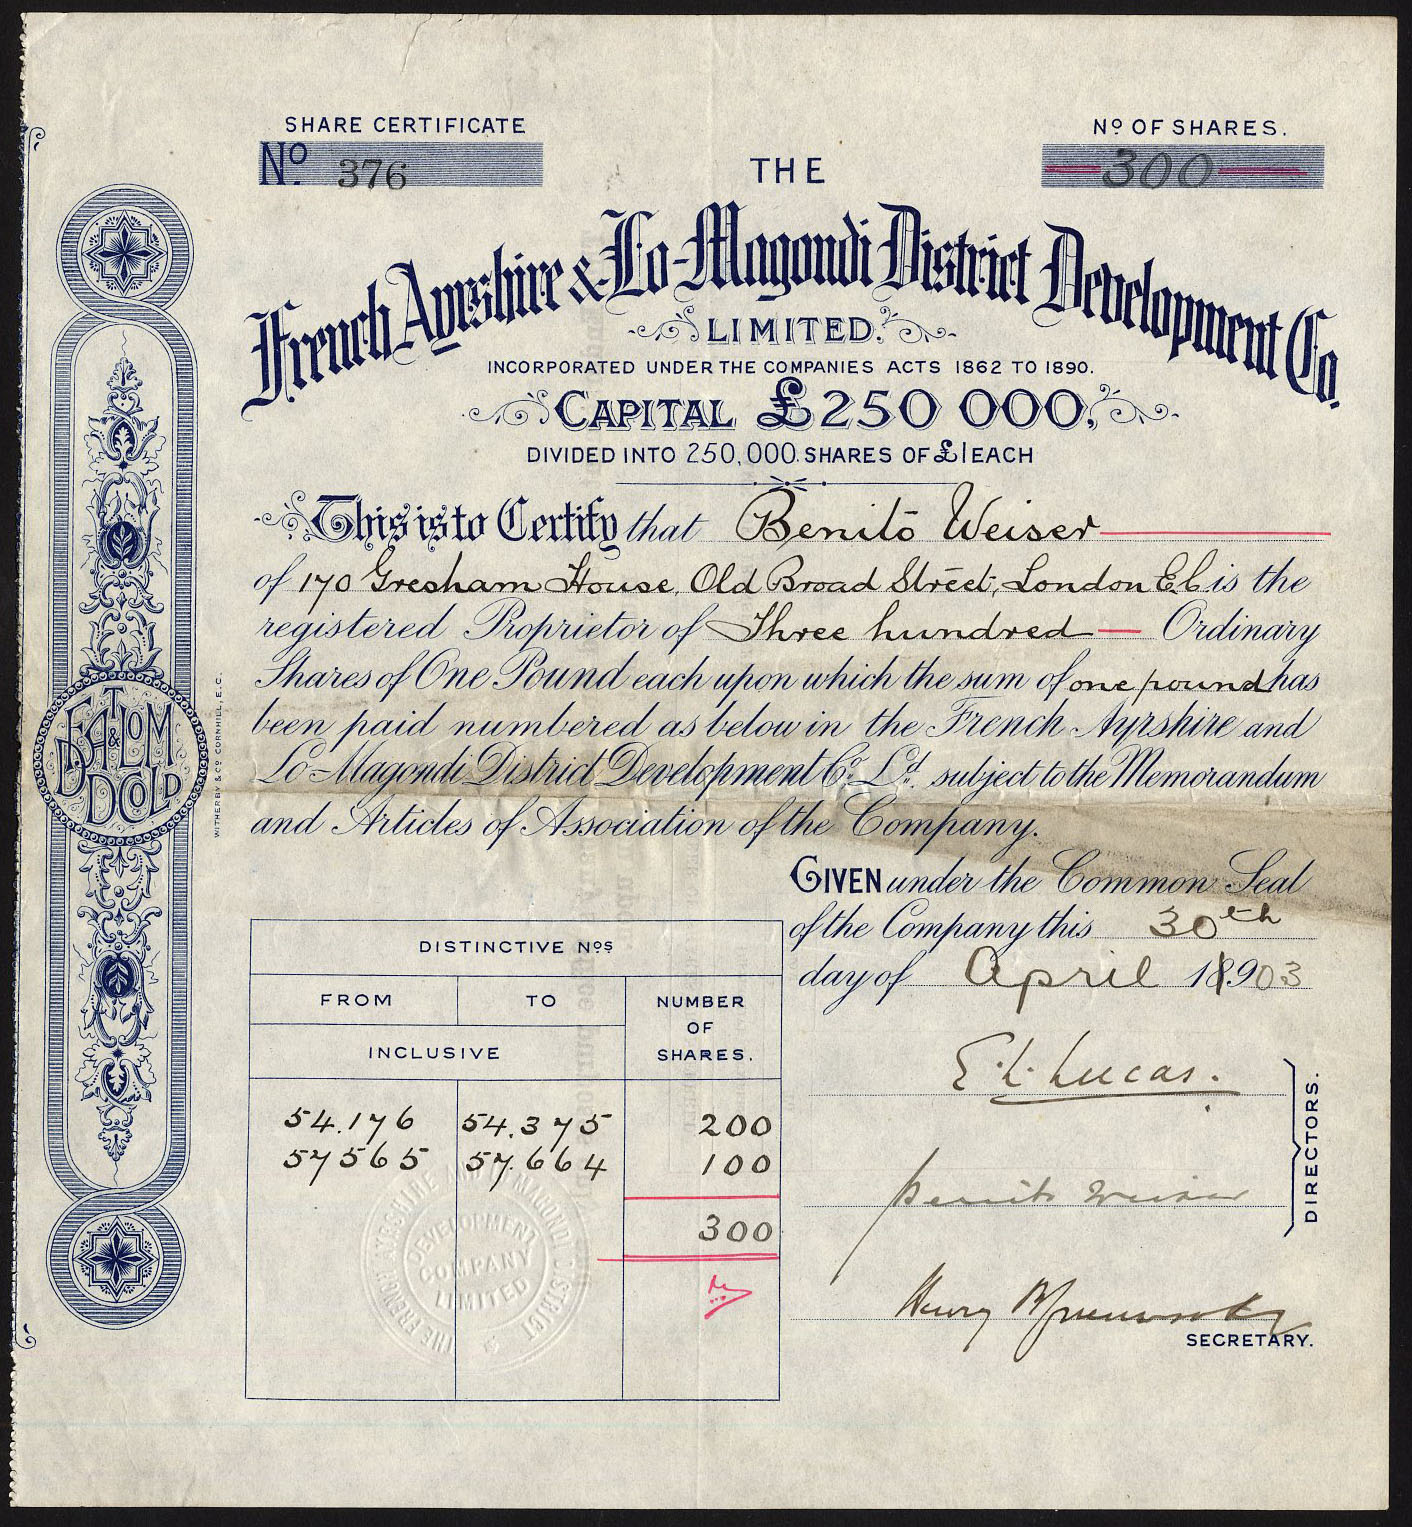 SHARE CERTIFICATE
No. 376
No OF SHARES.
300
THE
French Ayrshire & Lo-Magondi District Development Co.
LIMITED.
INCORPORATED UNDER THE COMPANIES ACTS 1862 TO 1890.
CAPITAL £250 000,
DIVIDED INTO 250,000 SHARES OF £1 EACH
This is to Certify that Benito Weiser
of 170 Gresham House, Old Broad Street, London E.C is the
registered Proprietor of Three hundred Ordinary
Shares of One Pound each upon which the sum of one pound has
been paid numbered as below in the French Ayrshire and
Lo-Magondi District Development Co. Ld. subject to the Memorandum
and Articles of Association of the Company.
GIVEN under the Common Seal
of the Company this 30th
day of April 1903
DISTINCTIVE Nos
FROM TO
INCLUSIVE
NUMBER
OF
SHARES.
54.176 54.375 200
57565 57.664 100
300
E. L. Lucas.
Benito Weiser
DIRECTORS.
Henry
SECRETARY.
THE FRENCH AYRSHIRE AND LO MAGONDI DISTRICT
DEVELOPMENT
COMPANY
LIMITED
WITHERBY & Co CORNHILL, E.C.